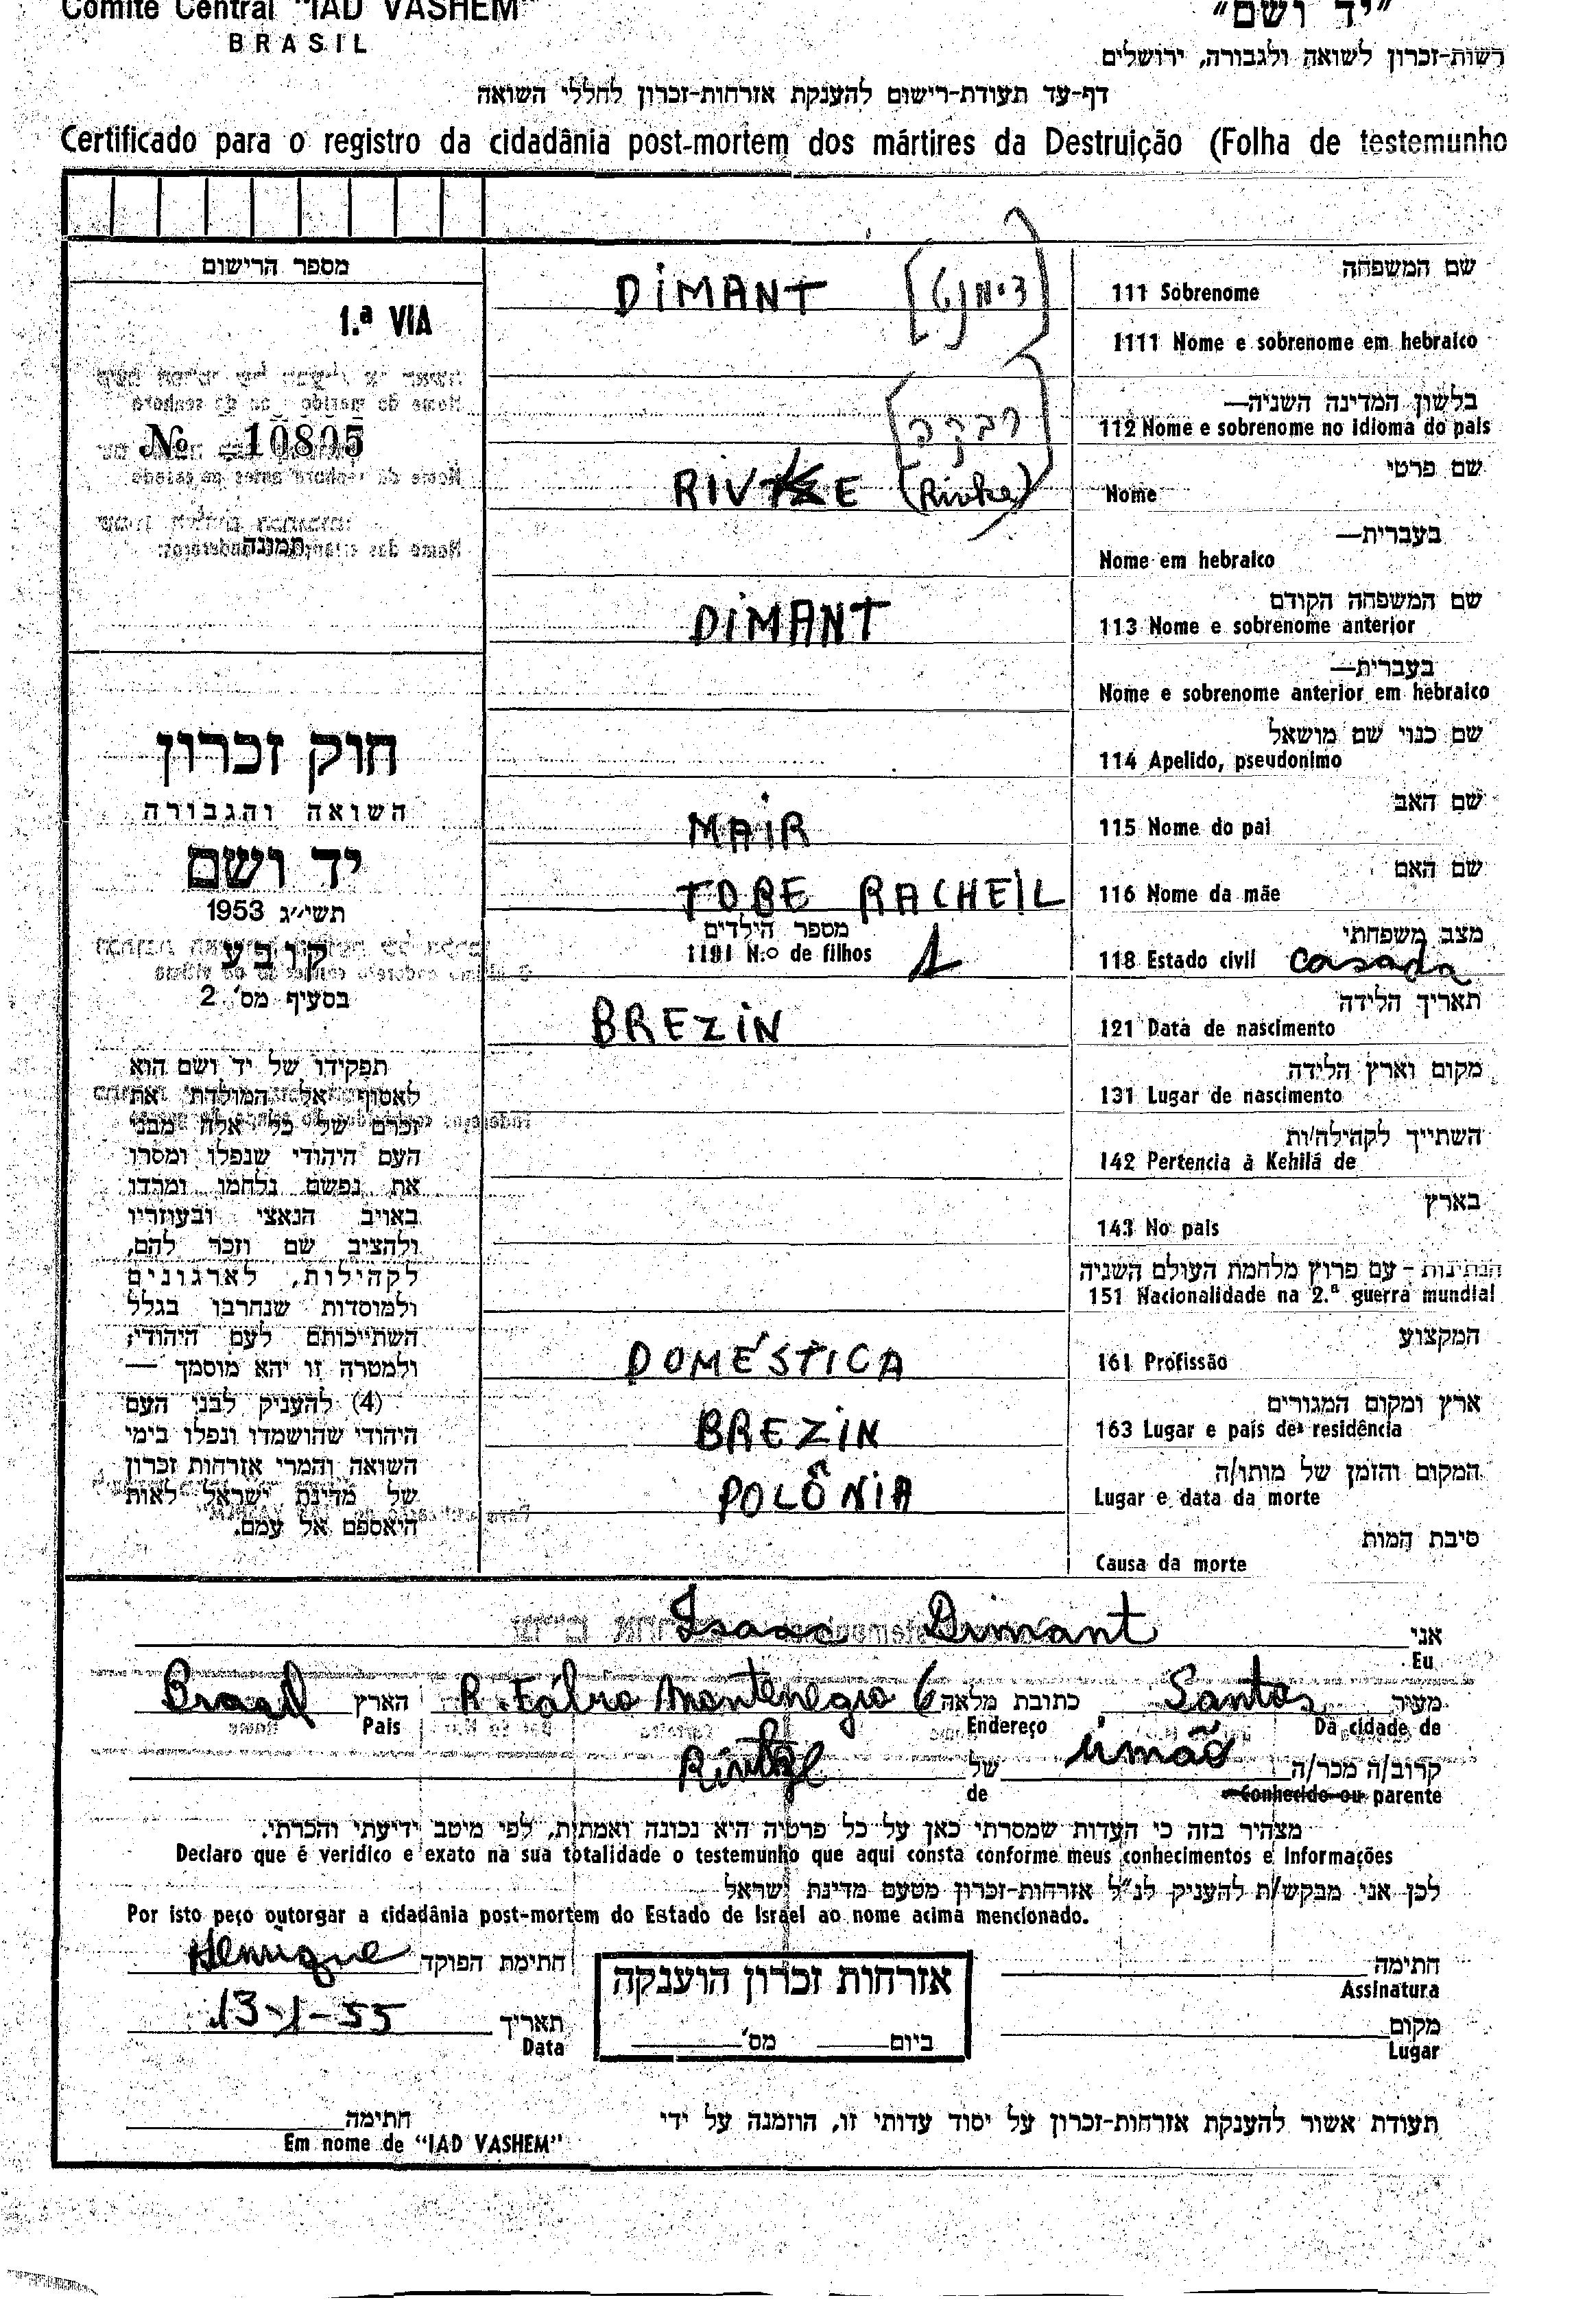 Comité Central "IAD VASHEM"
BRASIL
"יד ושם"
רשות-זכרון לשואה ולגבורה, ירושלים
דף-עד תעודת-רישום להענקת אזרחות-זכרון לחללי השואה
Certificado para o registro da cidadânia post-mortem dos mártires da Destruição (Folha de testemunho
מספר הרישום
1.ª VIA
№ 10805
תמונה
חוק זכרון
השואה והגבורה
יד ושם
תשי"ג 1953
קובע
בסעיף מס' 2
תפקידו של יד ושם הוא
לאסוף אל המולדת את
זכרם של כל אלה מבני
העם היהודי שנפלו ומסרו
את נפשם נלחמו ומרדו
באויב הנאצי ובעוזריו
ולהציב שם וזכר להם,
לקהילות, לארגונים
ולמוסדות שנחרבו בגלל
השתייכותם לעם היהודי;
ולמטרה זו יהא מוסמך —
(4) להעניק לבני העם
היהודי שהושמדו ונפלו בימי
השואה והמרי אזרחות זכרון
של מדינת ישראל לאות
היאספם אל עמם.
שם המשפחה
111 Sobrenome DIMANT [דימנט]
1111 Nome e sobrenome em hebraico
בלשון המדינה השניה—
112 Nome e sobrenome no idioma do pais [רבקה]
שם פרטי
Nome RIVKE (Rivke)
בעברית—
Nome em hebraico
שם המשפחה הקודם
113 Nome e sobrenome anterior DIMANT
בעברית—
Nome e sobrenome anterior em hebraico
שם כנוי שם מושאל
114 Apelido, pseudonimo
שם האב
115 Nome do pai MAIR
שם האם
116 Nome da mãe TOBE RACHEIL
מצב משפחתי
118 Estado civil casada
מספר הילדים
1181 N.o de filhos 1
תאריך הלידה
121 Data de nascimento BREZIN
מקום וארץ הלידה
131 Lugar de nascimento
השתייך לקהילה/ות
142 Pertencia à Kehilá de
בארץ
143 No pais
הנתינות - עם פרוץ מלחמת העולם השניה
151 Nacionalidade na 2.ª guerra mundial
המקצוע
161 Profissão DOMÉSTICA
ארץ ומקום המגורים
163 Lugar e pais de residência BREZIN
המקום והזמן של מותו/ה
Lugar e data da morte POLÔNIA
סיבת המות
Causa da morte
אני Isaac Dimant
Eu
מעיר Santos כתובת מלאה R. Fábio Montenegro 6 הארץ Brasil
Da cidade de Endereço Pais
קרוב/ה מכר/ה irmão של
Conhecido ou parente de
מצהיר בזה כי העדות שמסרתי כאן על כל פרטיה היא נכונה ואמתית, לפי מיטב ידיעתי והכרתי.
Declaro que é veridico e exato na sua totalidade o testemunho que aqui consta conforme meus conhecimentos e informações
לכן אני מבקש/ת להעניק לנ"ל אזרחות-זכרון מטעם מדינת ישראל
Por isto peço outorgar a cidadânia post-mortem do Estado de Israel ao nome acima mencionado.
חתימה
Assinatura
חתימת הפוקד Henrique
אזרחות זכרון הוענקה
ביום מס'
מקום
Lugar
תאריך 13-1-55
Data
תעודת אשור להענקת אזרחות-זכרון על יסוד עדותי זו, הוזמנה על ידי
חתימה
Em nome de "IAD VASHEM"